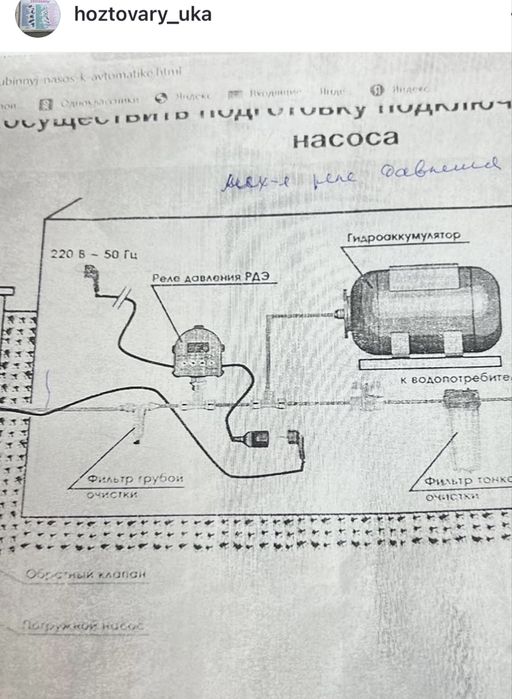 hoztovary_uka
ubinnyj-nasos-k-avtomatike.html
Одноклассники Яндекс Входящие Янде... Яндекс
осуществить подготовку подключ
насоса
мех-е реле давления
Гидроаккумулятор
220 В ~ 50 Гц
Реле давления РДЭ
к водопотребите
Фильтр грубой
очистки
Фильтр тонко
очистки
Обратный клапан
Погружной насос